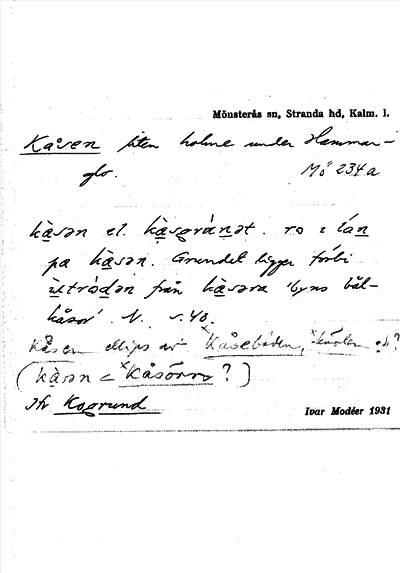 Mönsterås sn, Stranda hd, Kalm. l.
Kåsen liten holme under Hammar-
glo. Mö 234a
kåsən el. kåsgrúnət. ro i land
pa kåsən. Grundet ligger förbi
utróđən från kåsəra 'byns båt-
kåsor' N. s. 40.
Kåsen ellips av ˣKåsebåden, ?
(kåsən < ˣKåsörn ?)
Jfr Kogrund
Ivar Modéer 1931